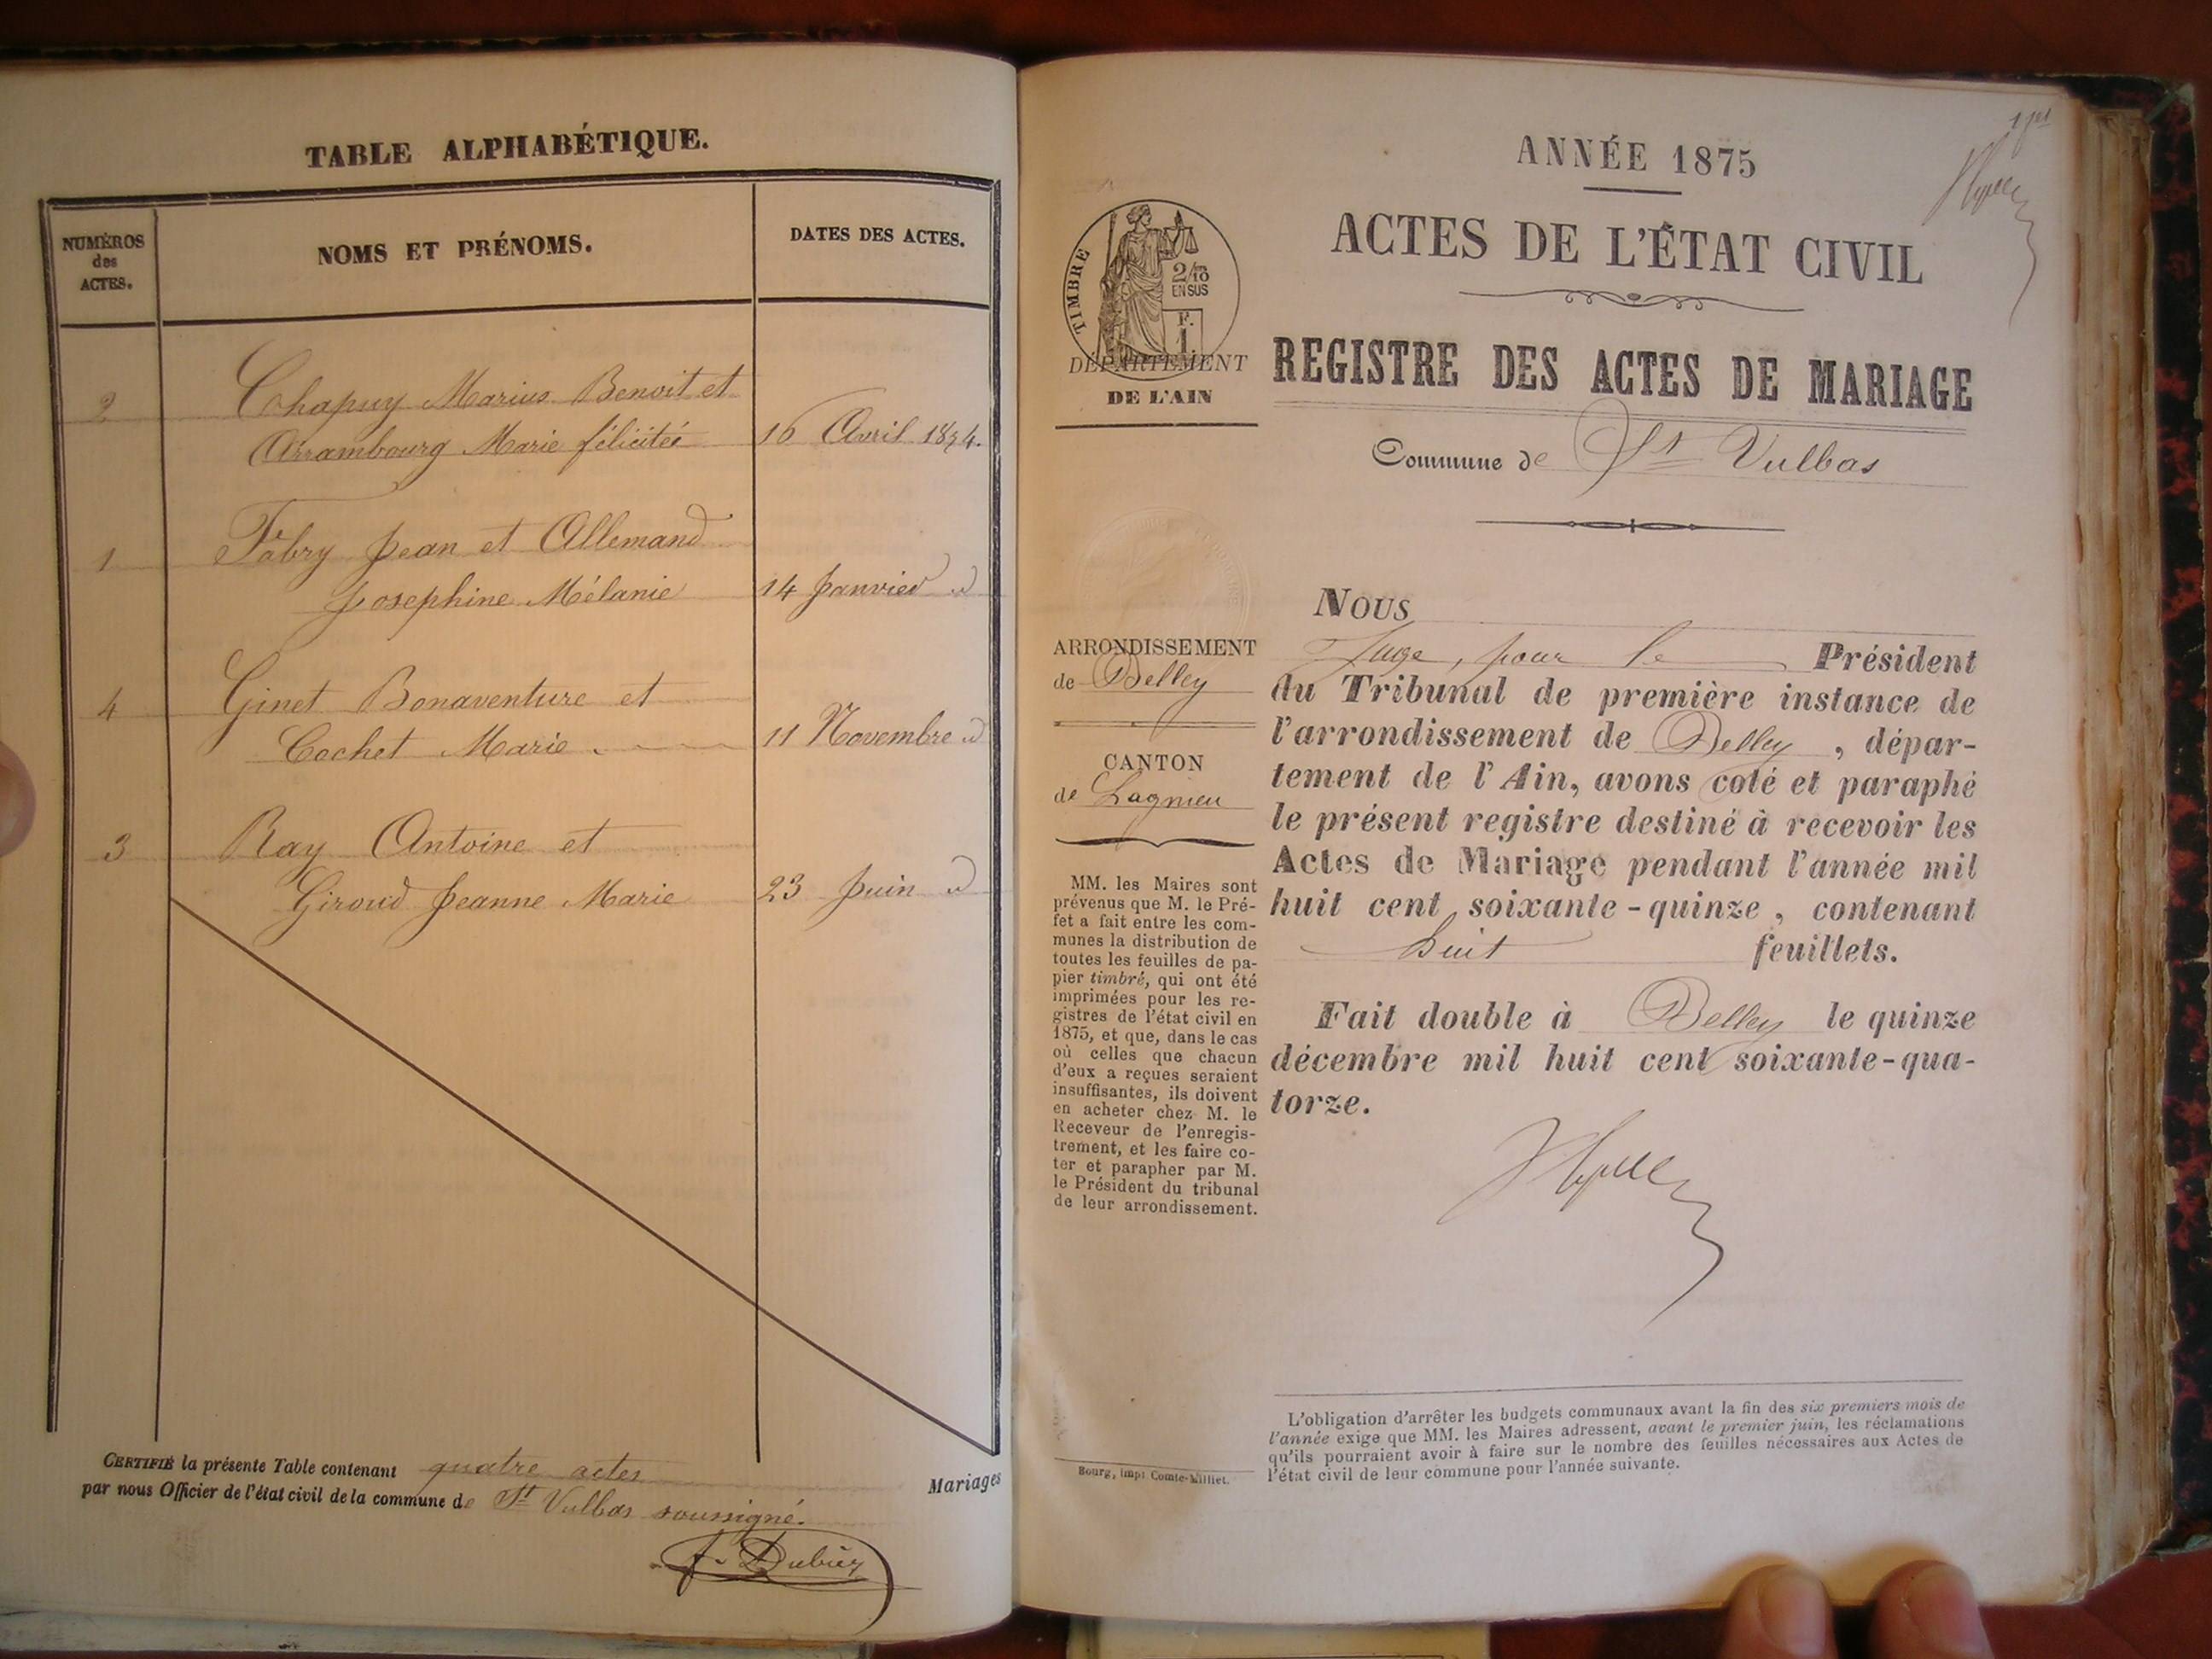 TABLE ALPHABÉTIQUE.
NUMÉROS
des
ACTES.
NOMS ET PRÉNOMS.
DATES DES ACTES.
2 Chapuy Marius Benoit et
Arrambourg Marie félicitée 16 Avril 1874.
1 Fabry Jean et Allemand
Josephine Mélanie 14 Janvier d
4 Ginet Bonaventure et
Cochet Marie 11 Novembre d
3 Ray Antoine et
Giroud Jeanne Marie 23 Juin d
CERTIFIÉ la présente Table contenant quatre actes
par nous Officier de l'état civil de la commune de St Vulbas soussigné.
Mariages
ANNÉE 1875
ACTES DE L'ÉTAT CIVIL
TIMBRE
2/10
EN SUS
F.
1.
DÉPARTEMENT
DE L'AIN
REGISTRE DES ACTES DE MARIAGE
Commune de St Vulbas
ARRONDISSEMENT
de Belley
CANTON
de Lagnieu
MM. les Maires sont
prévenus que M. le Pré-
fet a fait entre les com-
munes la distribution de
toutes les feuilles de pa-
pier timbré, qui ont été
imprimées pour les re-
gistres de l'état civil en
1875, et que, dans le cas
où celles que chacun
d'eux a reçues seraient
insuffisantes, ils doivent
en acheter chez M. le
Receveur de l'enregis-
trement, et les faire co-
ter et parapher par M.
le Président du tribunal
de leur arrondissement.
NOUS
Juge, pour le Président
du Tribunal de première instance de
l'arrondissement de Belley, dépar-
tement de l'Ain, avons coté et paraphé
le présent registre destiné à recevoir les
Actes de Mariage pendant l'année mil
huit cent soixante-quinze, contenant
huit feuillets.
Fait double à Belley le quinze
décembre mil huit cent soixante-qua-
torze.
L'obligation d'arrêter les budgets communaux avant la fin des six premiers mois de
l'année exige que MM. les Maires adressent, avant le premier juin, les réclamations
qu'ils pourraient avoir à faire sur le nombre des feuilles nécessaires aux Actes de
l'état civil de leur commune pour l'année suivante.
Bourg, imp. Comte-Milliet.